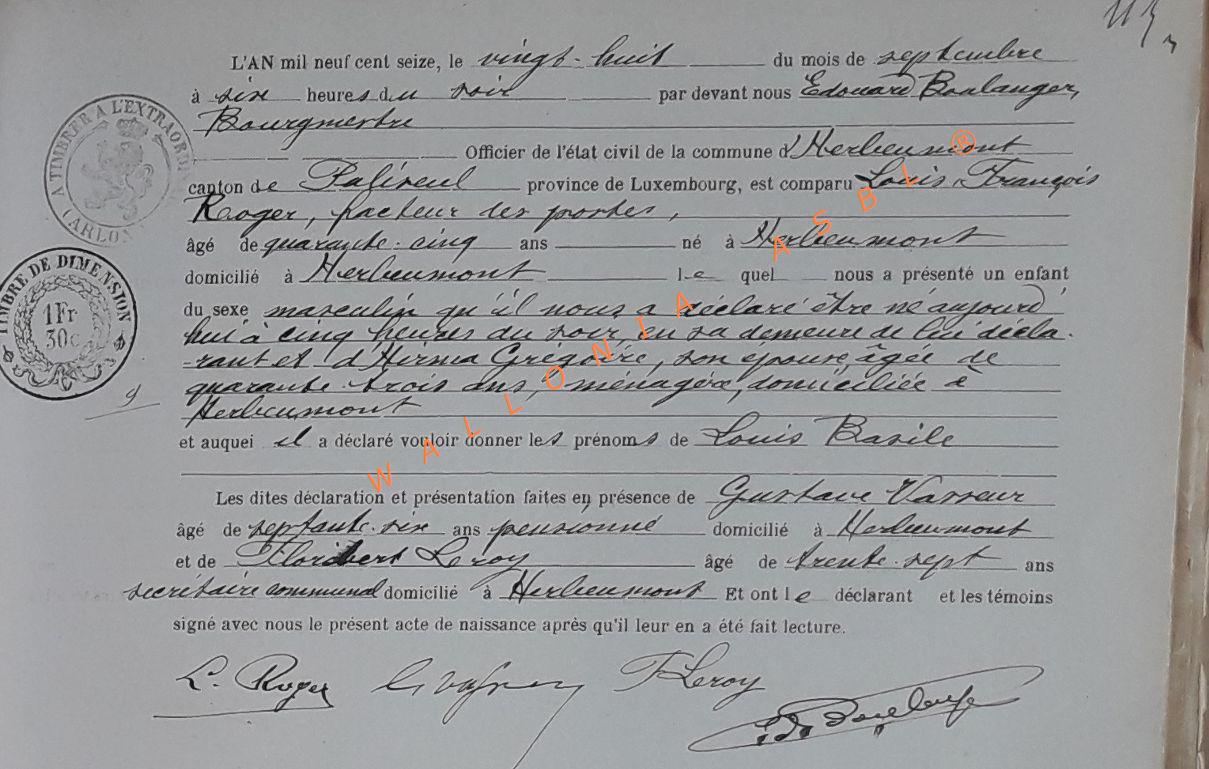 L'AN mil neuf cent seize, le vingt-huit du mois de septembre
à six heures du soir par devant nous Edouard Boulanger,
Bourgmestre
Officier de l'état civil de la commune d'Herbeumont
canton de Paliseul province de Luxembourg, est comparu Louis, François
Roger, facteur des postes,
âgé de quarante-cinq ans né à Herbeumont
domicilié à Herbeumont le quel nous a présenté un enfant
du sexe masculin qu'il nous a déclaré être né aujourd'
hui à cinq heures du soir, en sa demeure de lui décla-
-rant et d'Hirma Grégoire, son épouse, âgée de
quarante-trois ans, ménagère, domiciliée à
Herbeumont
et auquel il a déclaré vouloir donner les prénoms de Louis Basile
Les dites déclaration et présentation faites en présence de Gustave Vasseur
âgé de septante-six ans pensionné domicilié à Herbeumont
et de Floribert Leroy âgé de trente-sept ans
secrétaire communal domicilié à Herbeumont Et ont le déclarant et les témoins
signé avec nous le présent acte de naissance après qu'il leur en a été fait lecture.
L. Roger F Leroy
A TIMBRER A L'EXTRAORD
ARLON
TIMBRE DE DIMENSION
1 Fr
30c
9
WALLONIA ASBL ®